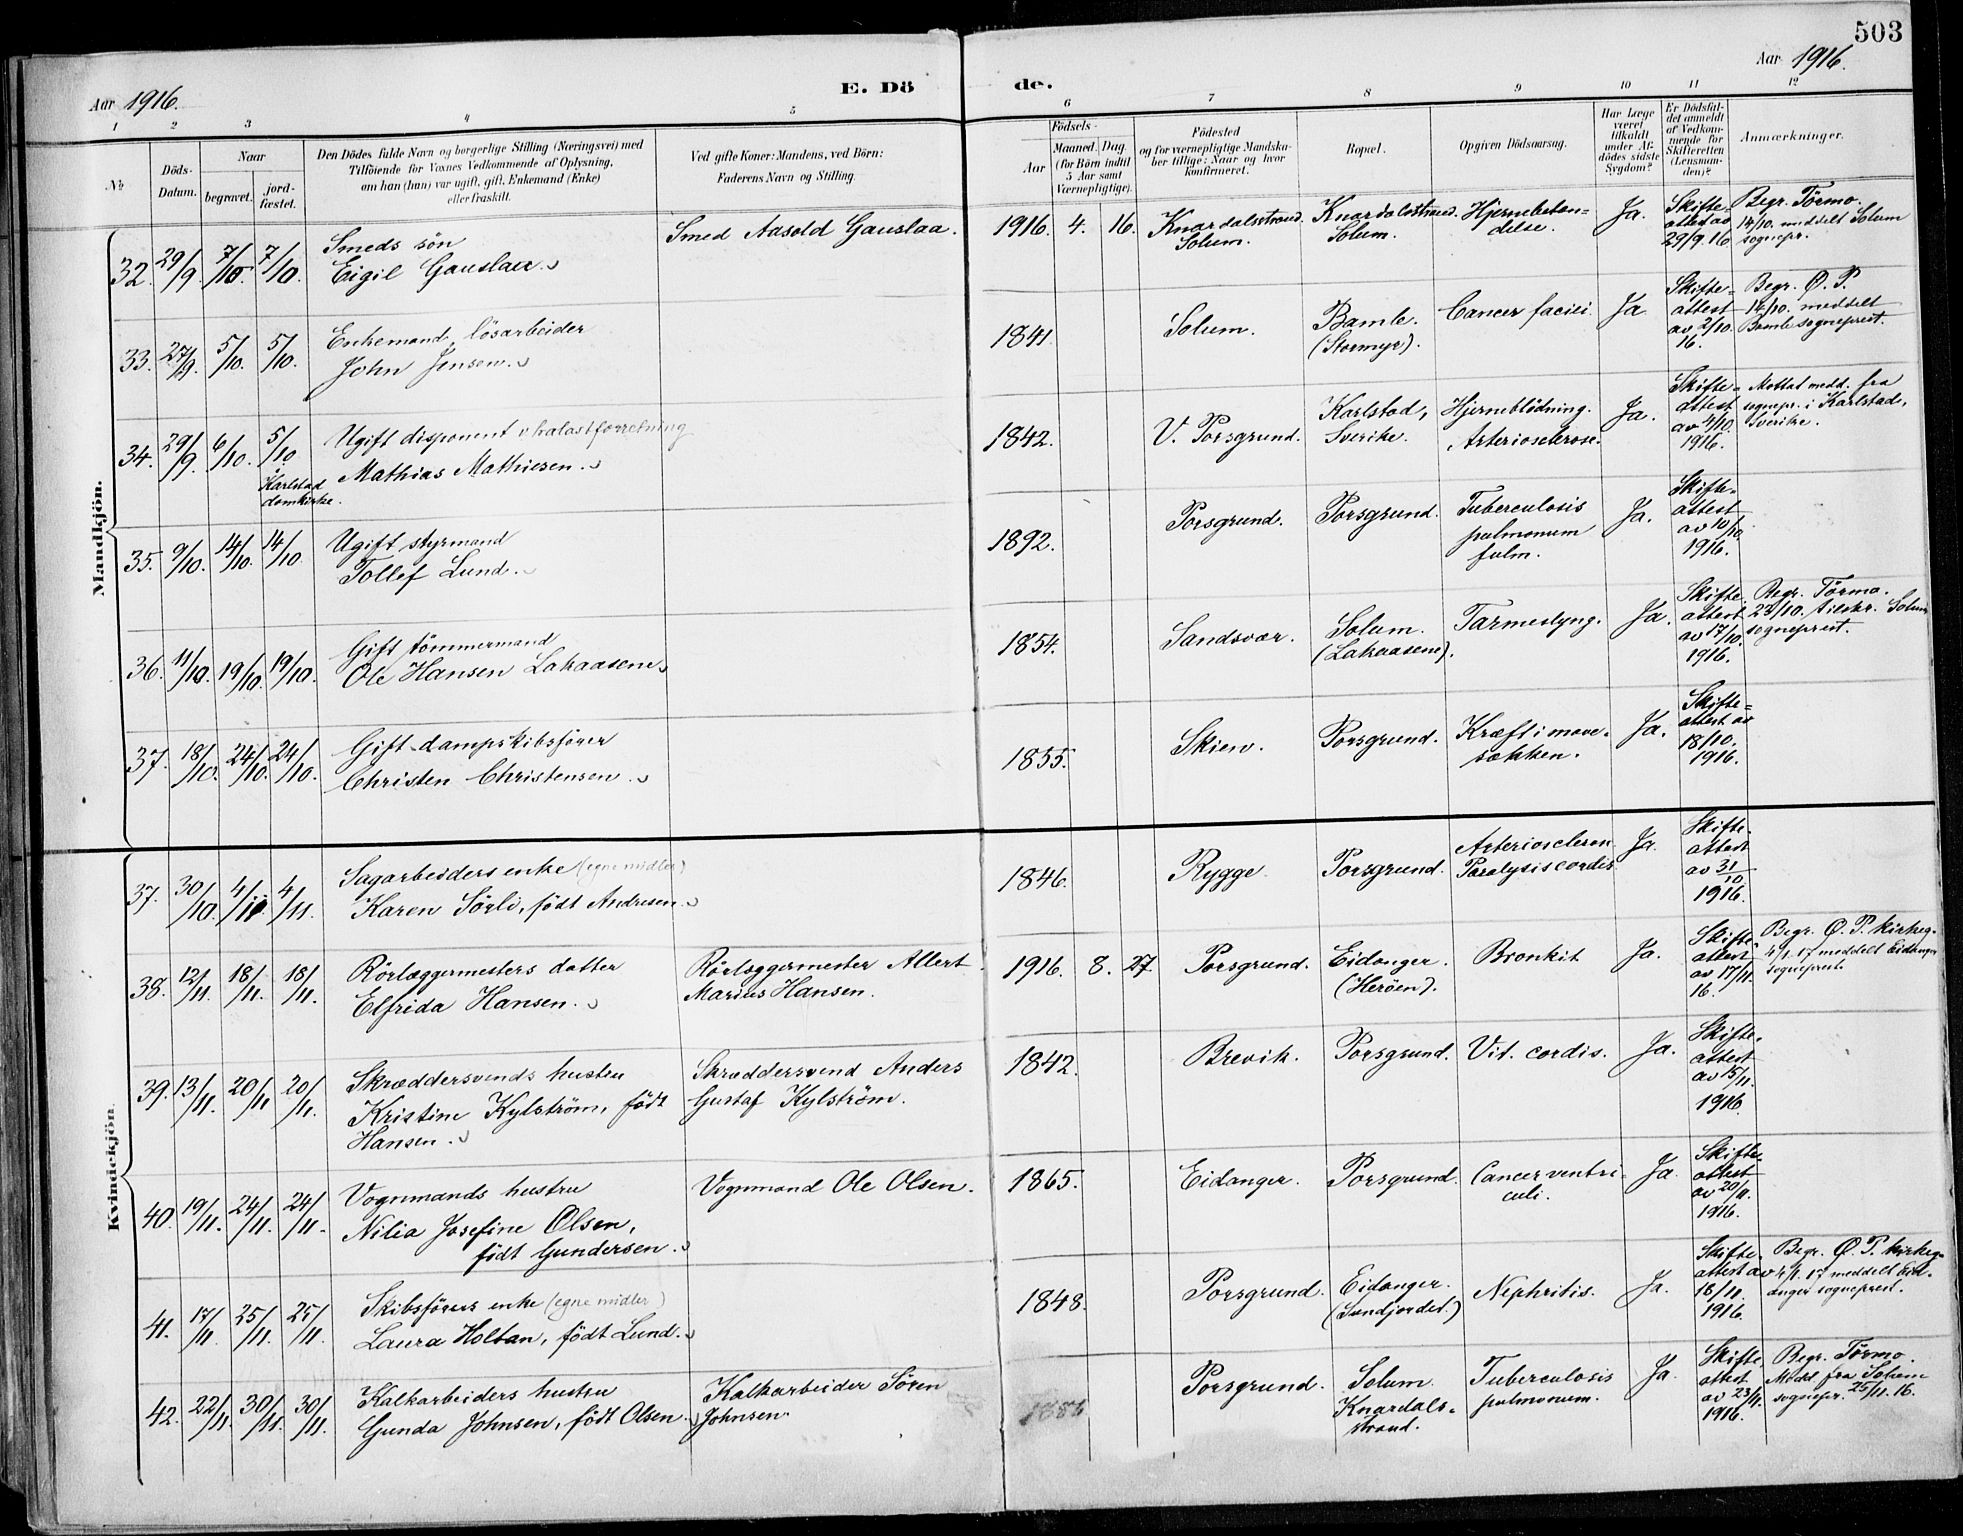 503
Aar 1916.
E. Dö
de.
Aar 1916.
1 2 3 4 5 6 7 8 9 10 11 12
No
Döds-
Datum.
Naar
begravet.
jord-
fæstet.
Den Dödes fulde Navn og borgerlige Stilling (Næringsvei) med
Tilföiende for Voxnes Vedkommende af Oplysning,
om han (hun) var ugift, gift, Enkemand (Enke)
eller fraskilt.
Ved gifte Koner: Mandens, ved Börn:
Faderens Navn og Stilling.
Födsels-
Aar
Maaned. Dag.
(for Börn indtil
5 Aar samt
Værnepligtige).
Födested
og for værnepligtige Mandska-
ber tillige: Naar og hvor
konfirmeret.
Bopæl.
Opgiven Dödsaarsag.
Har Læge
været
tilkaldt
under Af-
dödes sidste
Sygdom?
Er Dödsfal-
det anmeldt
af Vedkom-
mende for
Skifteretten
(Lensman-
den)?
Anmærkninger.
Mandkjön.
32. 29/9. 7/10. 7/10.
Smeds sön
Eigil Gauslaa.
Smed Aasold Gauslaa.
1916. 4. 16.
Knardalsstrand.
Solum.
Knardalsstrand.
Solum.
Hjernebeten=
delse.
Ja.
Skifte
attest av
29/9.16
Begr. Törmo.
14/10. meddelt Solum
sognepr.
33. 27/9. 5/10. 5/10.
Enkemand, lösarbeider
John Jensen.
1841.
Solum.
Bamle.
(Stormyr).
Cancer faciei
Ja
Skifte=
attest
av 2/10.
16.
Begr. Ø. P.
14/10. meddelt
Bamle sogneprest.
34. 29/9. 6/10. 5/10
Karlstad
domkirke.
Ugift disponent i halastforretning
Mathias Mathiesen.
1842.
V. Porsgrund.
Karlstad,
Sverike.
Hjerneblödning.
Arteriosclerose.
Ja.
Skifte=
attest
av 4/10.
1916.
Mottat medd. fra
sognepr. i Karlstad,
Sverike.
35. 9/10. 14/10. 14/10
Ugift styrmand
Tollef Lund.
1892.
Porsgrund.
Porsgrund.
Tuberculosis
pulmonum
fulm.
Ja.
Skifte=
attest
av 10/10
1916.
36. 11/10. 19/10. 19/10.
Gift tömmermand
Ole Hansen Lakaasene
1854.
Sandsvær.
Solum.
(Lakaasene).
Tarmeslyng.
Ja.
Skifte
attest
av 17/10.
1916.
Begr. Törmo.
23/10. tilskr. Solum
sogneprest.
37. 18/10. 24/10. 24/10.
Gift dampskibsförer
Christen Christensen.
1855.
Skien.
Porsgrund.
Kræft i mave-
sækken.
Ja.
Skifte=
attest av
18/10.
1916.
Kvindekjön.
37. 30/10. 4/11. 4/11.
Sagarbeiders enke (egne midler)
Karen Sörli, födt Andresen.
1846.
Rygge.
Porsgrund.
Arteriosclerose
Paralysis cordis
Ja.
Skifte-
attest
av 31/10
1916.
38. 12/11. 18/11. 18/11.
Rörlæggermesters datter
Elfrida Hansen.
Rörlæggermester Albert
Marius Hansen.
1916. 8. 27.
Porsgrund.
Eidanger.
(Heröen).
Bronkit
Ja.
Skifte
attest
av 17/11.
16.
Begr. Ø. P. kirkeg.
4/1.17 meddelt Eidanger
sogneprest.
39. 13/11. 20/11 20/11.
Skræddersvends hustru
Kristine Kylström, födt
Hansen.
Skræddersvend Anders
Gustaf Kylström.
1842.
Brevik.
Porsgrund.
Vit. cordis.
Ja.
Skifte-
attest
av 15/11.
1916.
40. 19/11. 24/11. 24/11.
Vognmands hustru
Nilia Josefine Olsen,
födt Gundersen.
Vognmand Ole Olsen.
1865.
Eidanger.
Porsgrund.
Cancer ventri-
culi.
Ja
Skifte-
attest
av 20/11.
1916.
41. 17/11. 25/11. 25/11.
Skibsförers enke (egne midler)
Laura Holtan, födt Lund.
1848.
Porsgrund.
Eidanger.
(Sundjordet.)
Nephritis.
Ja.
Skifte-
attest av
18/11.
1916.
Begr. Ø. P. kirkeg.
4/1. 17 meddelt Eid-
anger sogneprest.
42. 22/11. 30/11. 30/11.
Kalkarbeiders hustru
Gunda Johnsen, födt Olsen.
Kalkarbeider Sören
Johnsen.
Porsgrund.
Solum.
Knardals-
strand.
Tuberculosis
pulmonum.
Ja.
Skifte
attest
av 23/11.
1916.
Begr. Törmo.
Medd. fra Solum
sognepr. 25/11. 16.